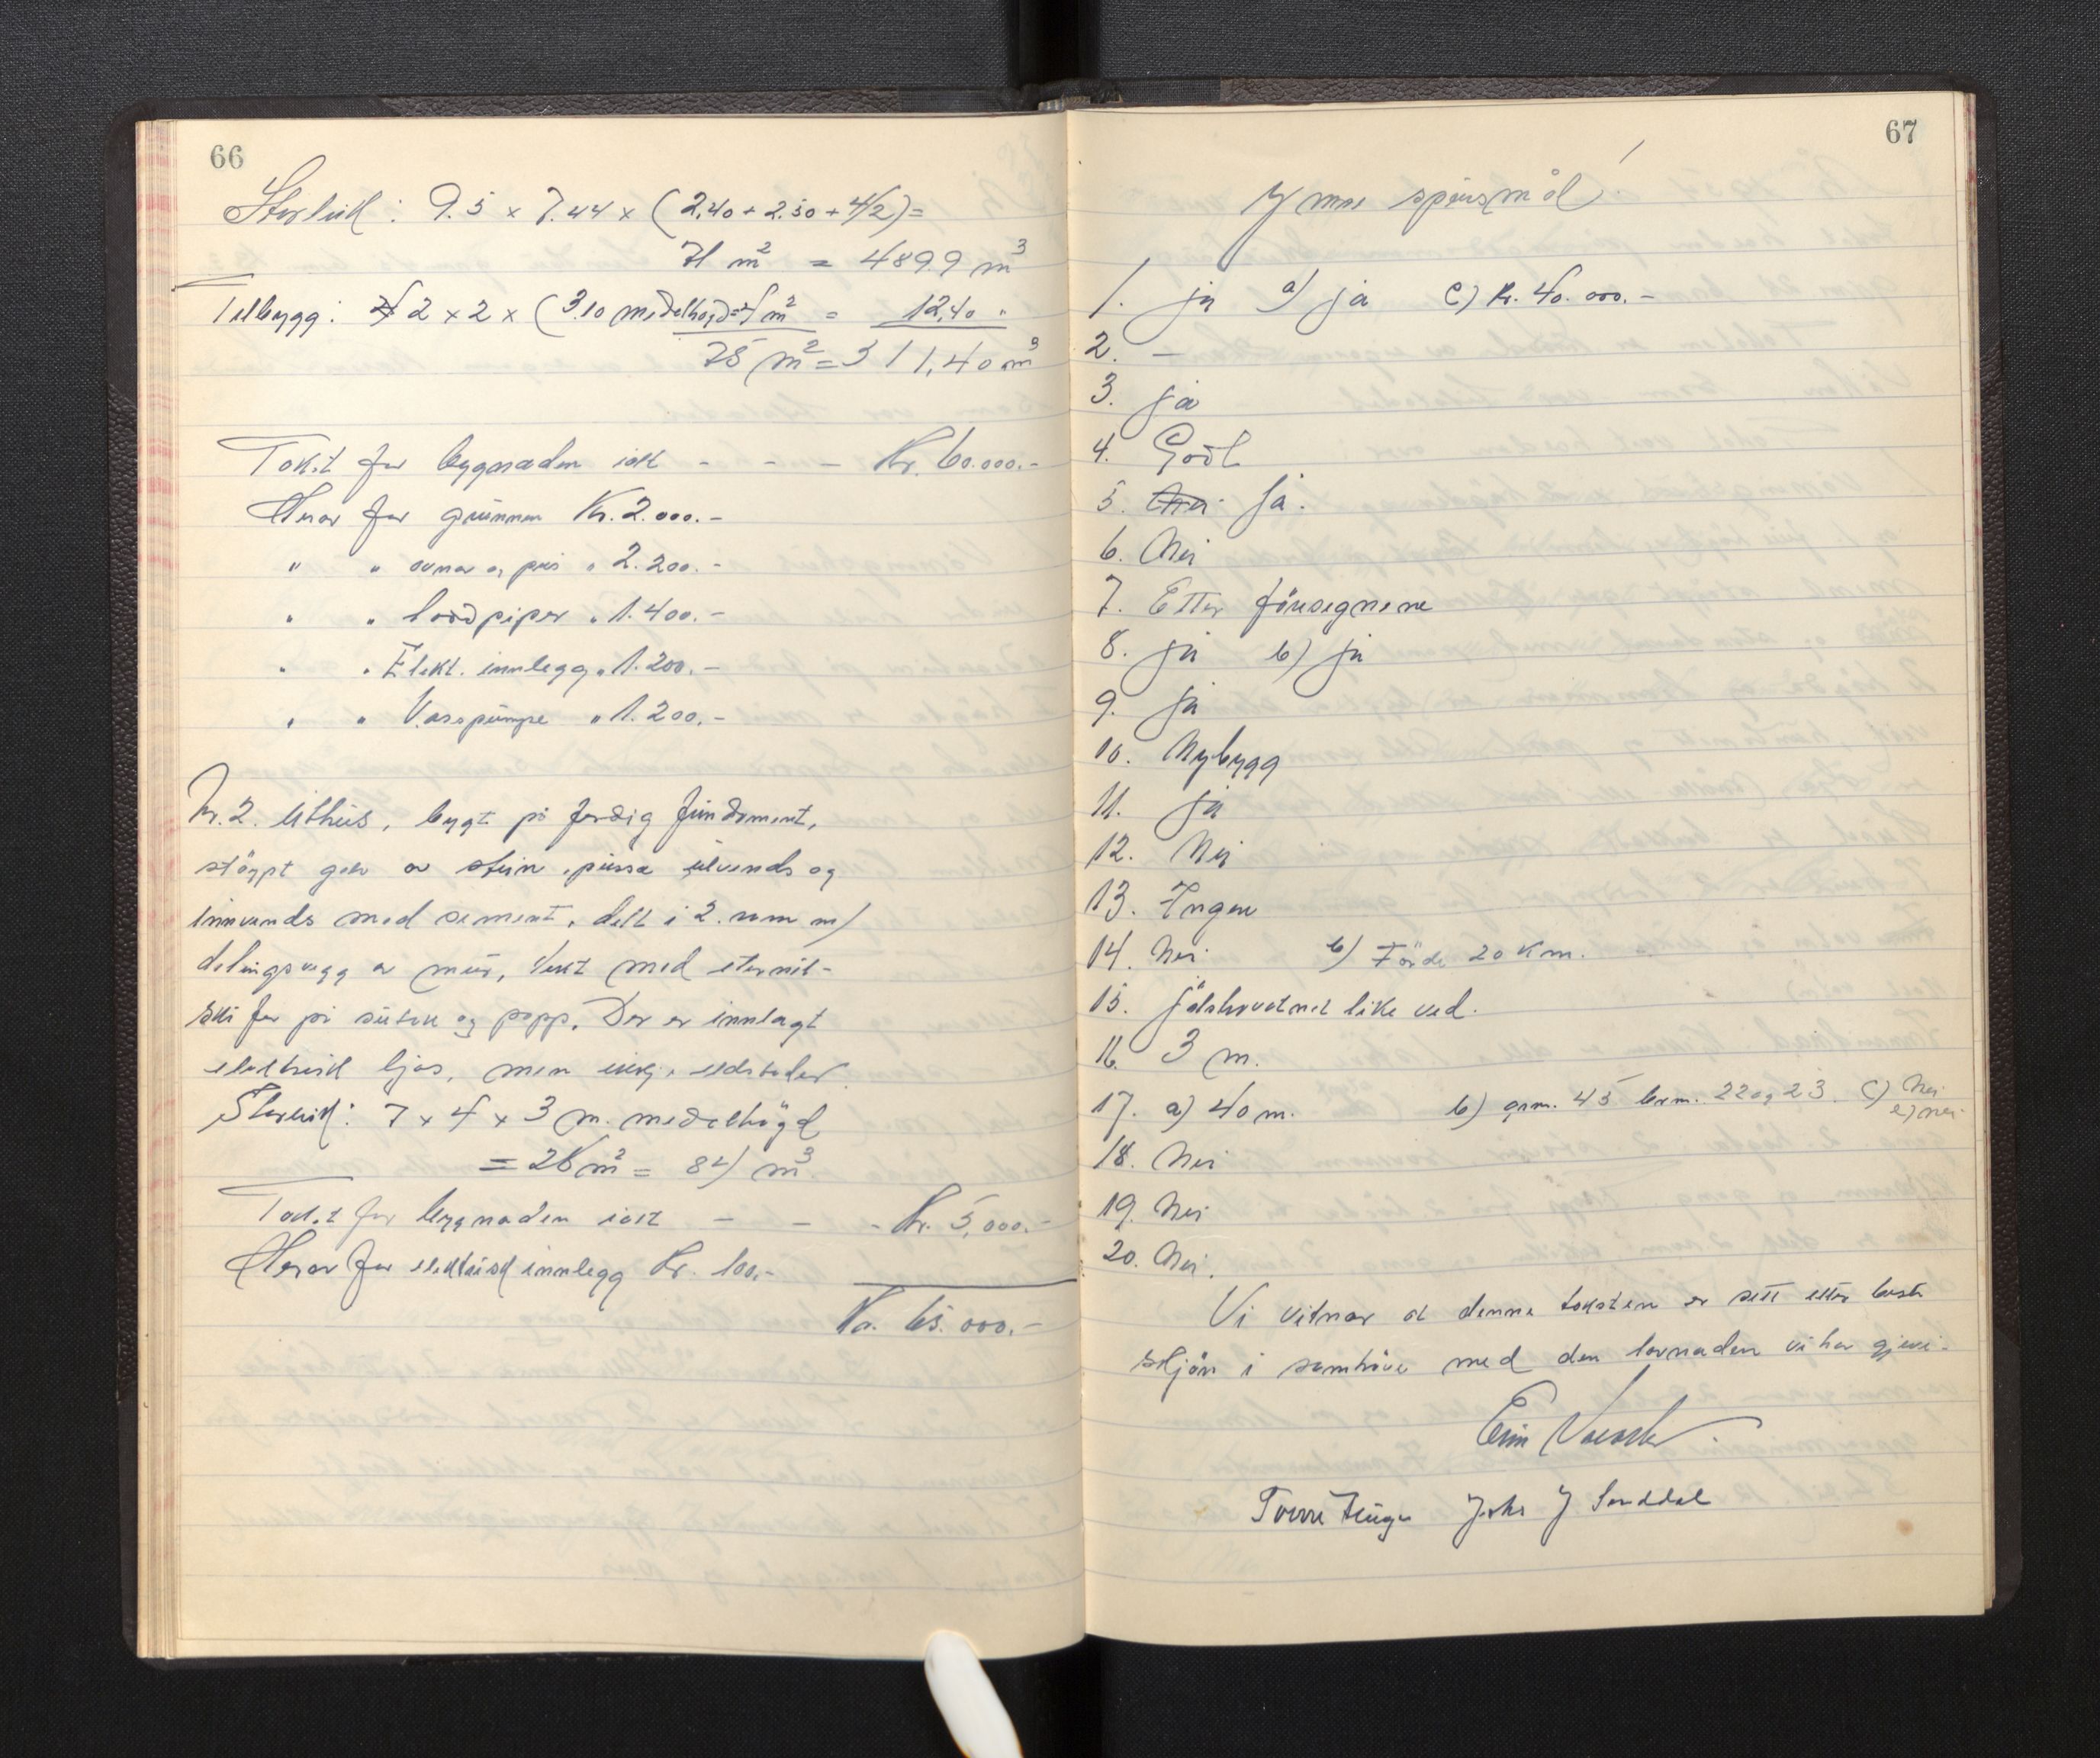 66
Storleik: 9.5 x 7.44 x (2,40 + 2.50 + 4/2) =
71 m² = 489.9 m³
Tilbygg: 2 x 2 x (3.10 medelhøgd = 4 m² = 12,40 "
75 m² = 311,40 m³
Takst for bygnaden ialt - - - Kr. 60.000.-
Herav for grunnen Kr. 2.000.-
" " ovnar og peis " 2.200.-
" " lovdpiper " 1.400.-
" " Elekt. innlegg " 1.200.-
" " Vasspumpe " 1.200.-
Nr. 2. Uthus, bygt på ferdig fundament,
støypt golv av stein, pussa utvends og
innvends med sement, delt i 2. rom m/
delingsvegg av mur, tekt med eternit-
skifer på sutak og papp. Der er innlagt
elektrisk ljos, men ikkje eldstader.
Storleik: 7 x 4 x 3 m. medelhögd
= 28 m² = 84 m³.
Takst for bygnaden ialt - - - Kr. 5,000.-
Herav for elektrisk innlegg Kr. 100,-
Kr. 65.000.-
67
Ymse spursmål!
1. ja a) ja c) kr. 40.000.-
2. -
3. ja
4. Godt
5. Nei Ja.
6. Nei
7. Etter föresegnene
8. ja b) ja
9. ja
10. Nybygg
11. ja
12. Nei
13. Ingen
14. Nei b) Förde 20 Km.
15. Jölstravatnet like ved.
16. 3 m.
17. a) 40 m. b) gnr. 45 brn. 22 og 23. c) Nei
e) nei
18. Nei
19. Nei
20. Nei.
Vi vitnar at denne taksten er sett etter beste
skjön i samhöve med den lovnaden vi har gjeve.
John J Sanddal